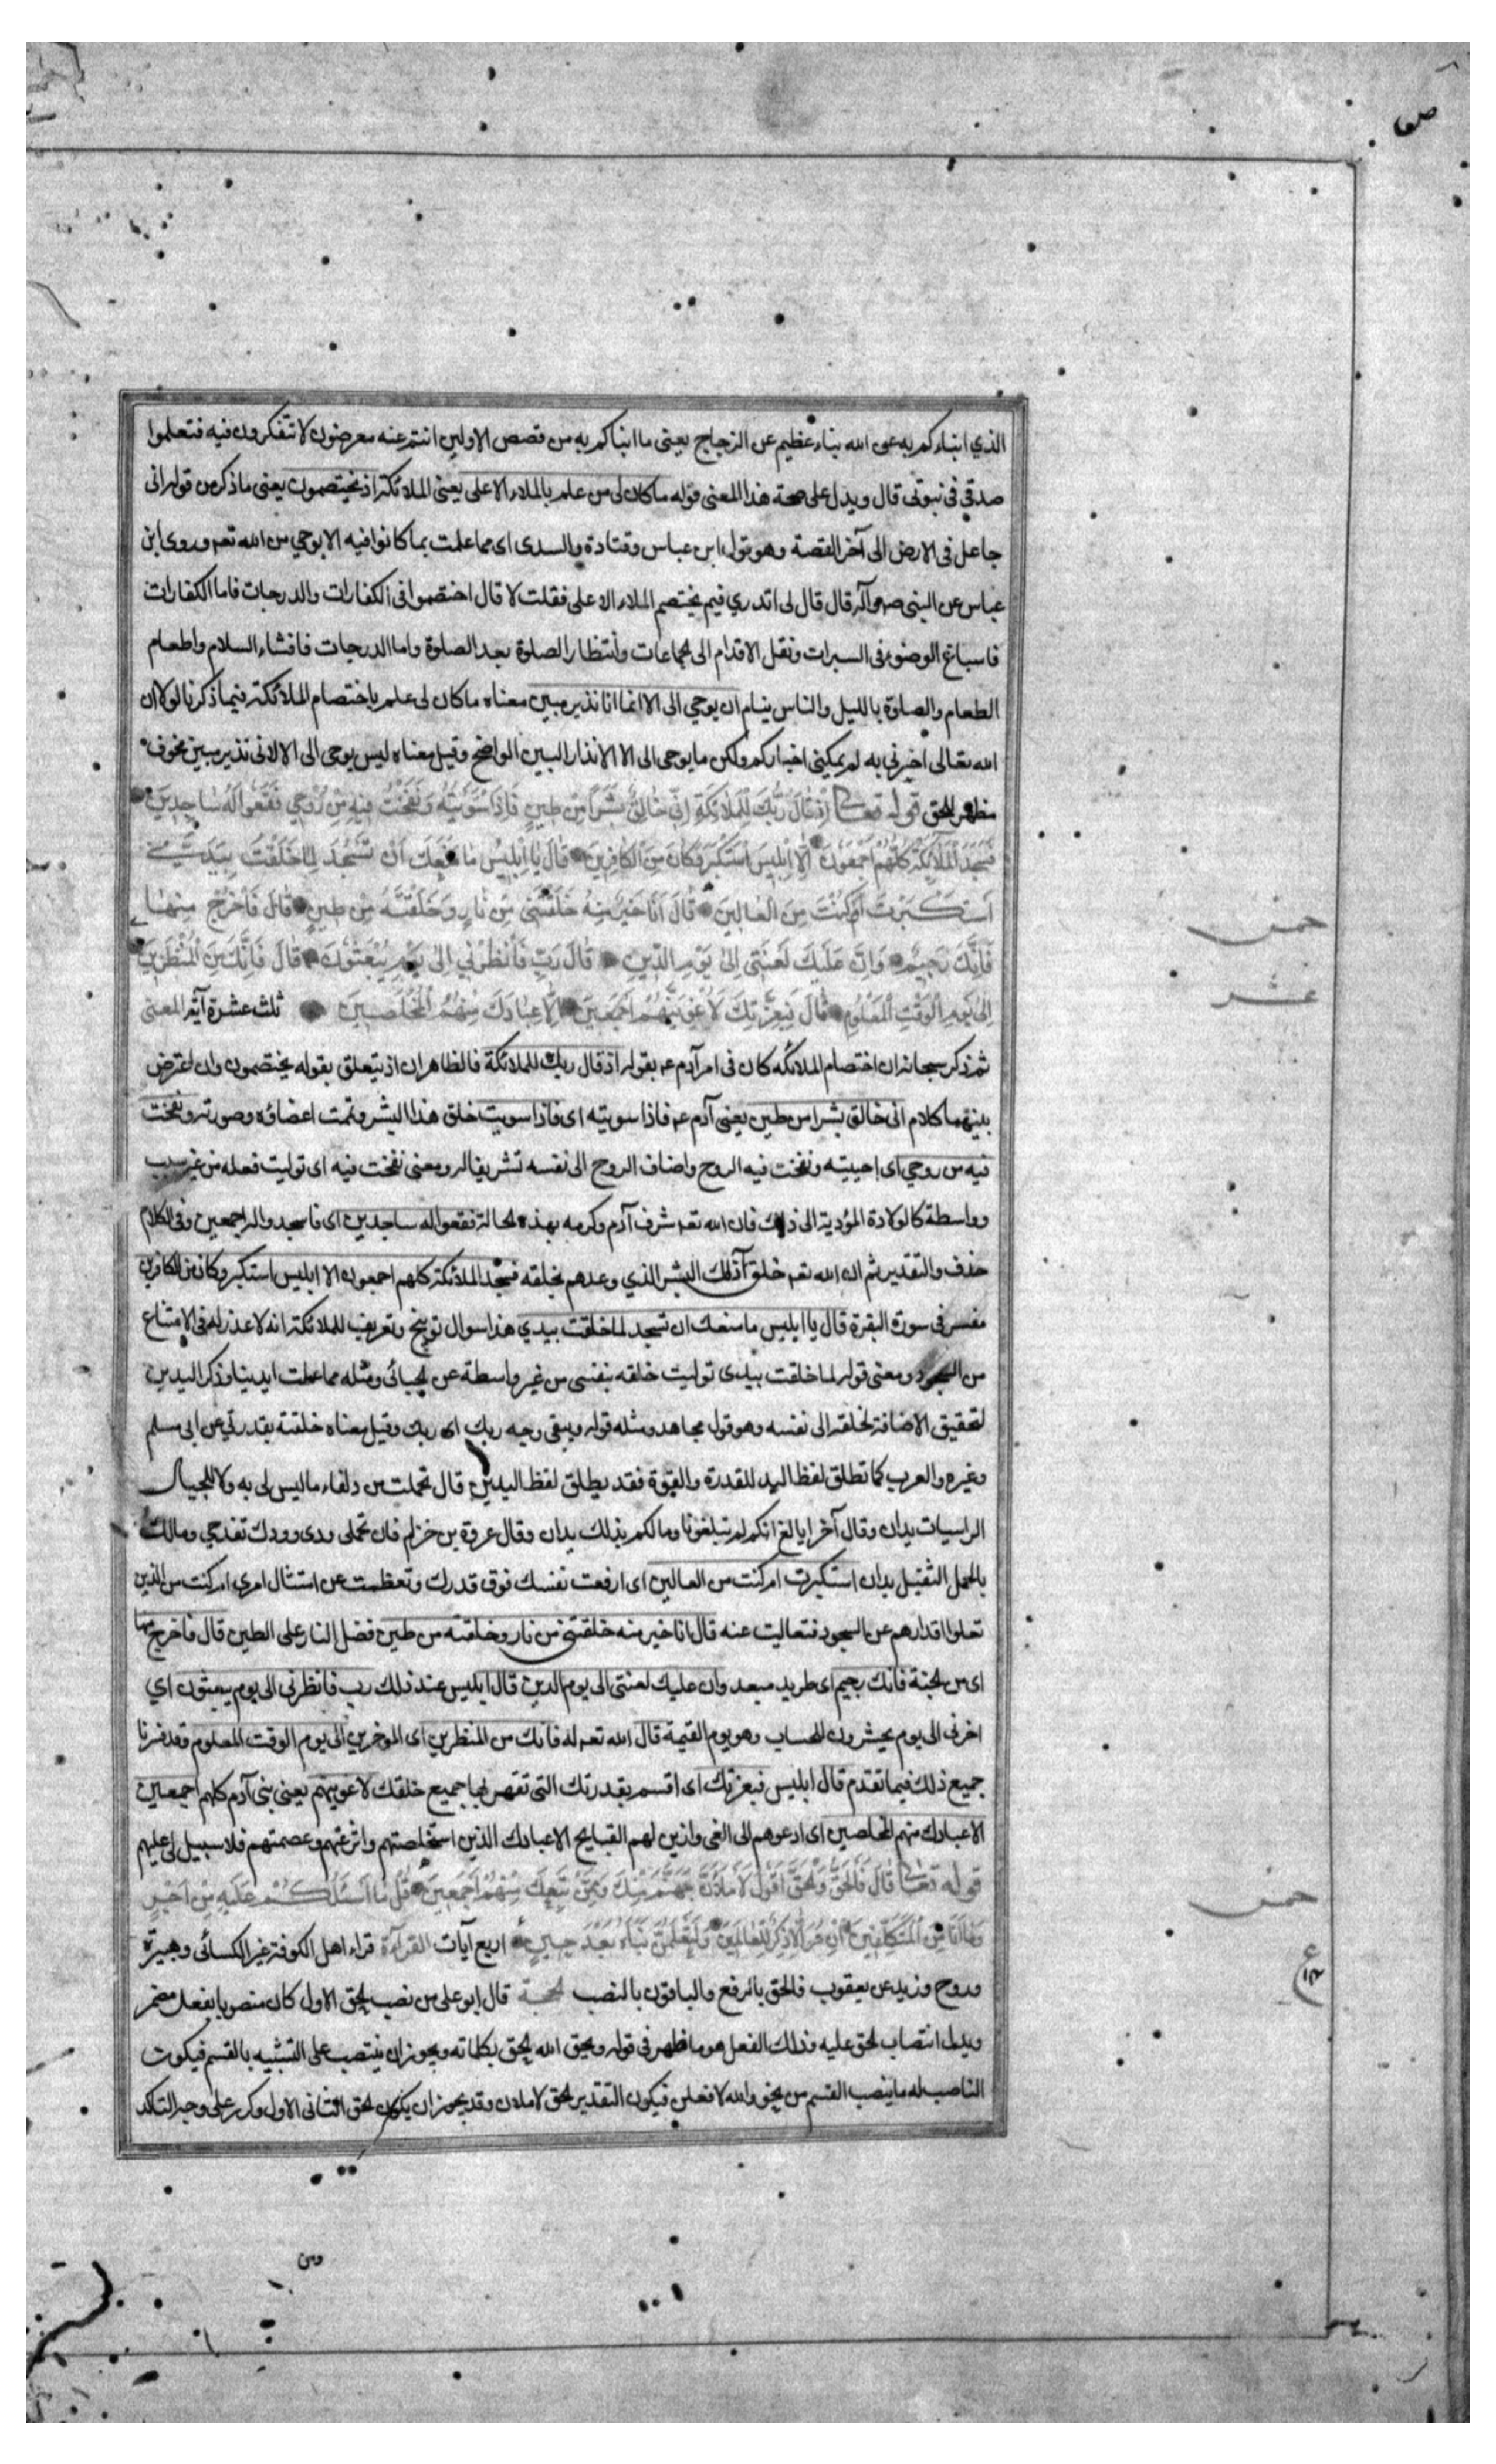 الذي انباءكم به عن الله نباء عظيم عن الزجاج يعنى ما انباكم به من قصص الاولين انتم عنه معرضون لا تتفكرون فيه فتعلموا
صدقي فى نبوتى قال ويدل على صحة هذا المعنى قوله ما كان لى من علم بالملاء الاعلى يعنى الملائكة اذ يختصمون يعنى ما ذكر من قوله انى
جاعل فى الارض الى آخر القصة وهو قول ابن عباس وقتادة والسدى اى مما علمت بما كانوا فيه الا بوحي من الله تعه وروى ابن
عباس عن النبى ص وآله قال قال لى اتدري فيم يختصم الملاء الاعلى فقلت لا قال اختصموا فى الكفارات والدرجات فاما الكفارات
فاسباغ الوضوء فى السبرات ونقل الاقدام الى الجماعات وانتظار الصلوة بعد الصلوة واما الدرجات فافشاء السلام واطعام
الطعام والصلوة بالليل والناس نيام ان يوحي الى الا انما انا نذير مبين معناه ما كان لى علم باختصام الملائكة فيما ذكرنا لولا ان
الله تعالى اخبرنى به لم يمكينى اخباركم ولكن ما يوحى الى الا الانذار البين الواضح وقيل معناه ليس يوحى الى الا لانى نذير مبين مخوف
مظهر للحق قوله تعالى اِذ قَالَ رَبُّكَ لِلمَلائِكَةِ اِنّى خَالِقٌ بَشَراً مِن طينٍ فَاِذا سَوَّيتُهُ وَنَفَختُ فيهِ مِن رُوحي فَقَعُوا لَهُ سَاجِدينَ
فَسَجَدَ المَلائِكَةُ كُلُّهُم اَجمَعُونَ اِلّا اِبليسَ استَكبَرَ وَكانَ مِنَ الكافِرينَ قالَ يا اِبليسُ ما مَنَعَكَ اَن تَسجُدَ لِما خَلَقتُ بِيَدَيَّ
اَستَكبَرتَ اَم كُنتَ مِنَ العَالينَ قالَ اَنا خَيرٌ مِنهُ خَلَقتَنى مِن نَارٍ وَخَلَقتَهُ مِن طينٍ قالَ فَاخرُج مِنها
فَاِنَّكَ رَجيمٌ وَاِنَّ عَلَيكَ لَعنَتى اِلى يَومِ الدّينِ قالَ رَبِّ فَاَنظِرنى اِلى يَومِ يُبعَثُونَ قالَ فَاِنَّكَ مِنَ المُنظَرينَ
اِلى يَومِ الوَقتِ المَعلُومِ قالَ فَبِعِزَّتِكَ لَاُغوِيَنَّهُم اَجمَعينَ اِلّا عِبادَكَ مِنهُمُ المُخلَصينَ ثلث عشرة آية المعنى
ثم ذكر سبحانه ان اختصام الملائكه كان فى امر آدم عه بقوله اذ قال ربك للملائكة فالظاهر ان اذ يتعلق بقوله يختصمون وان اعترض
بينهما كلام انى خالق بشرا من طين يعنى آدم عه فاذا سويته اى فاذا سويت خلق هذا البشر وتمت اعضاؤه وصورته ونفخت
فيه من روحي اى احييته ونفخت فيه الروح واضاف الروح الى نفسه تشريفا له ومعنى نفخت فيه اى توليت فعله من غير سبب
وواسطة كالولادة المؤدية الى ذلك فان الله تعه شرف آدم وكرمه بهذه الحالة فقعوا له ساجدين اى فاسجدوا له اجمعين وفى الكلام
حذف والتقدير ثم ان الله تعه خلق آذلك البشر الذي وعدهم بخلقه فسجد الملائكة كلهم اجمعون الا ابليس استكبر وكان من الكافرين
مفسر فى سورة البقرة قال يا ابليس ما منعك ان تسجد لما خلقت بيدي هذا سوال توبيخ وتعريف للملائكة انه لا عذر له فى الامتناع
من السجود ومعنى قوله لما خلقت بيدى توليت خلقه بنفسى من غير واسطة عن الجبائى ومثله مما عملت ايدينا وذكر اليدين
لتحقيق الاضافة لخلقه الى نفسه وهو قول مجاهد ومثله قوله ويبقى وجه ربك اى ربك وقيل معناه خلقته بقدرتى عن ابى مسلم
وغيره والعرب كما تطلق لفظ اليد للقدرة والقوة فقد يطلق لفظ اليدين قال تحملت من دلفاء ما ليس لى به ولا للجبال
الراسيات يدان وقال آخر ايا لغ انكم لم تبلغونا وما لكم بذلك يدان وقال عروة بن حزام فان تحملى ودى وودك تفدحي ومالك
بالحمل الثقيل يدان استكبرت ام كنت من العالين اى ارفعت نفسك فوق قدرك وتعظمت عن امتثال امري ام كنت من الذين
تعلوا اقدارهم عن السجود فتعاليت عنه قال انا خير منه خلقتنى من نار وخلقته من طين فضل النار على الطين قال فاخرج منها
اى من الجنة فانك رجيم اى طريد مبعد وان عليك لعنتى الى يوم الدين قال ابليس عند ذلك رب فانظرنى الى يوم يبعثون اي
اخرنى الى يوم يحشرون للحساب وهو يوم القيمة قال الله تعه له فانك من المنظرين اى الموخرين الى يوم الوقت المعلوم وقد فسرنا
جميع ذلك فيما تقدم قال ابليس فبعزتك اى اقسم بقدرتك التى تقهر بها جميع خلقك لاغوينهم يعنى بنى آدم كلهم اجمعين
الا عبادك منهم المخلصين اى ادعوهم الى الغى وازين لهم القبايح الا عبادك الذين استخلصتهم واثرتهم وعصمتهم فلا سبيل لى عليهم
قوله تعالى قالَ فَالحَقُّ وَالحَقَّ اَقُولُ لَاَملَاَنَّ جَهَنَّمَ مِنكَ وَمِمَّن تَبِعَكَ مِنهُم اَجمَعينَ قُل ما اَسئَلُكُم عَلَيهِ مِن اَجرٍ
وَما اَنَا مِنَ المُتَكَلِّفينَ اِن هُوَ اِلّا ذِكرٌ لِلعالَمينَ وَلَتَعلَمُنَّ نَبَاَهُ بَعدَ حينٍ اربع آيات القرآءة قراء اهل الكوفة غير الكسائى وهبيرة
وروح وزيد عن يعقوب فالحق بالرفع والباقون بالنصب الحجة قال ابو على من نصب الحق الاول كان منصوبا بفعل مضمر
ويدل انتصاب الحق عليه وذلك الفعل هو ما ظهر فى قوله ويحق الله الحق بكلماته ويجوز ان ينتصب على التشبيه بالقسم فيكون
الناصب له ما ينصب القسم من نحو والله لافعلن فيكون التقدير الحق لاملان وقد يجوز ان يكون الحق الثانى الاول وكرر على وجه التاكيد
خمس
عشر
خمس
ع